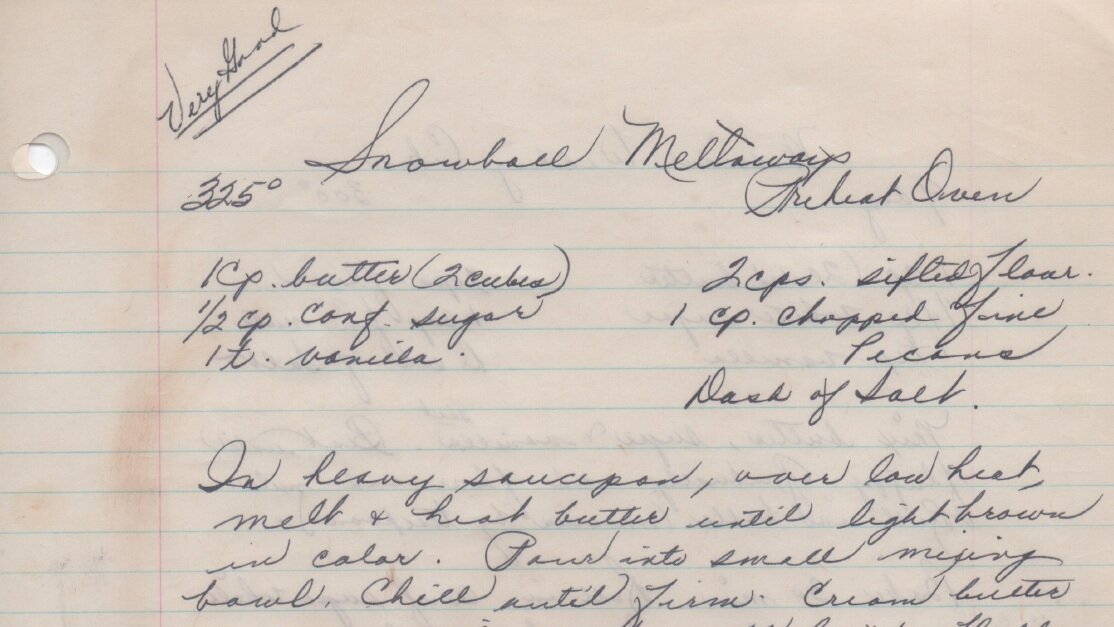 Very Good
Snowball Meltaways
325° Preheat Oven
1 Cp. butter (2 cubes) 2 cps. sifted flour.
1/2 cp. conf. sugar 1 cp. chopped fine
1 t. vanilla. Pecans
Dash of Salt.
In heavy saucepan, over low heat,
melt & heat butter until light brown
in color. Pour into small mixing
bowl. Chill until firm. Cream butter